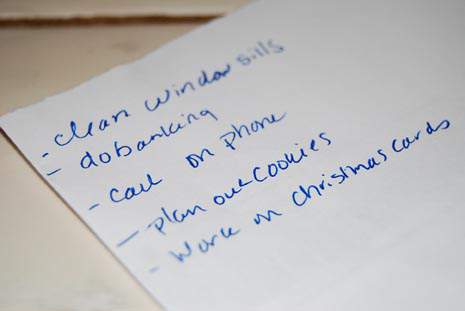 - clean window sills
- do banking
- call on phone
- plan out cookies
- work on christmas cards